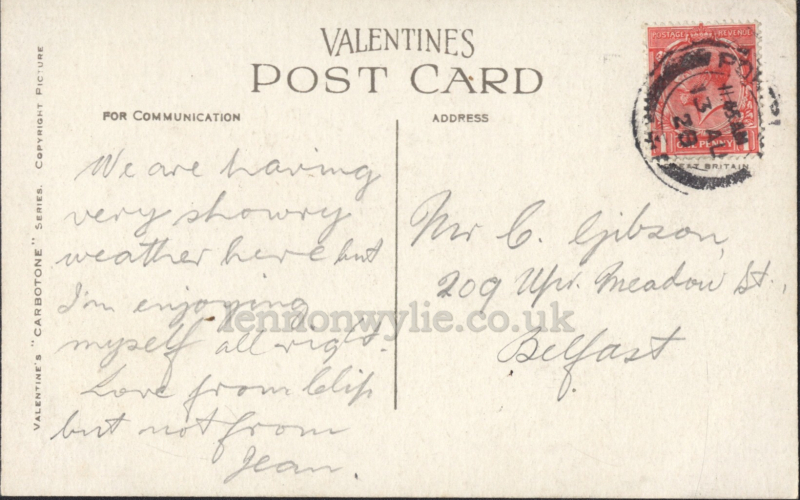 VALENTINES
POST CARD
FOR COMMUNICATION
ADDRESS
VALENTINE'S "CARBOTONE" SERIES. COPYRIGHT PICTURE
We are having
very showry
weather here but
I'm enjoying
myself all right.
Love from Clip
but not from
Jean.
Mr C. Gibson,
209 Upr. Meadow St.,
Belfast
POSTAGE REVENUE
ONE PENNY
13
29
lennonwylie.co.uk